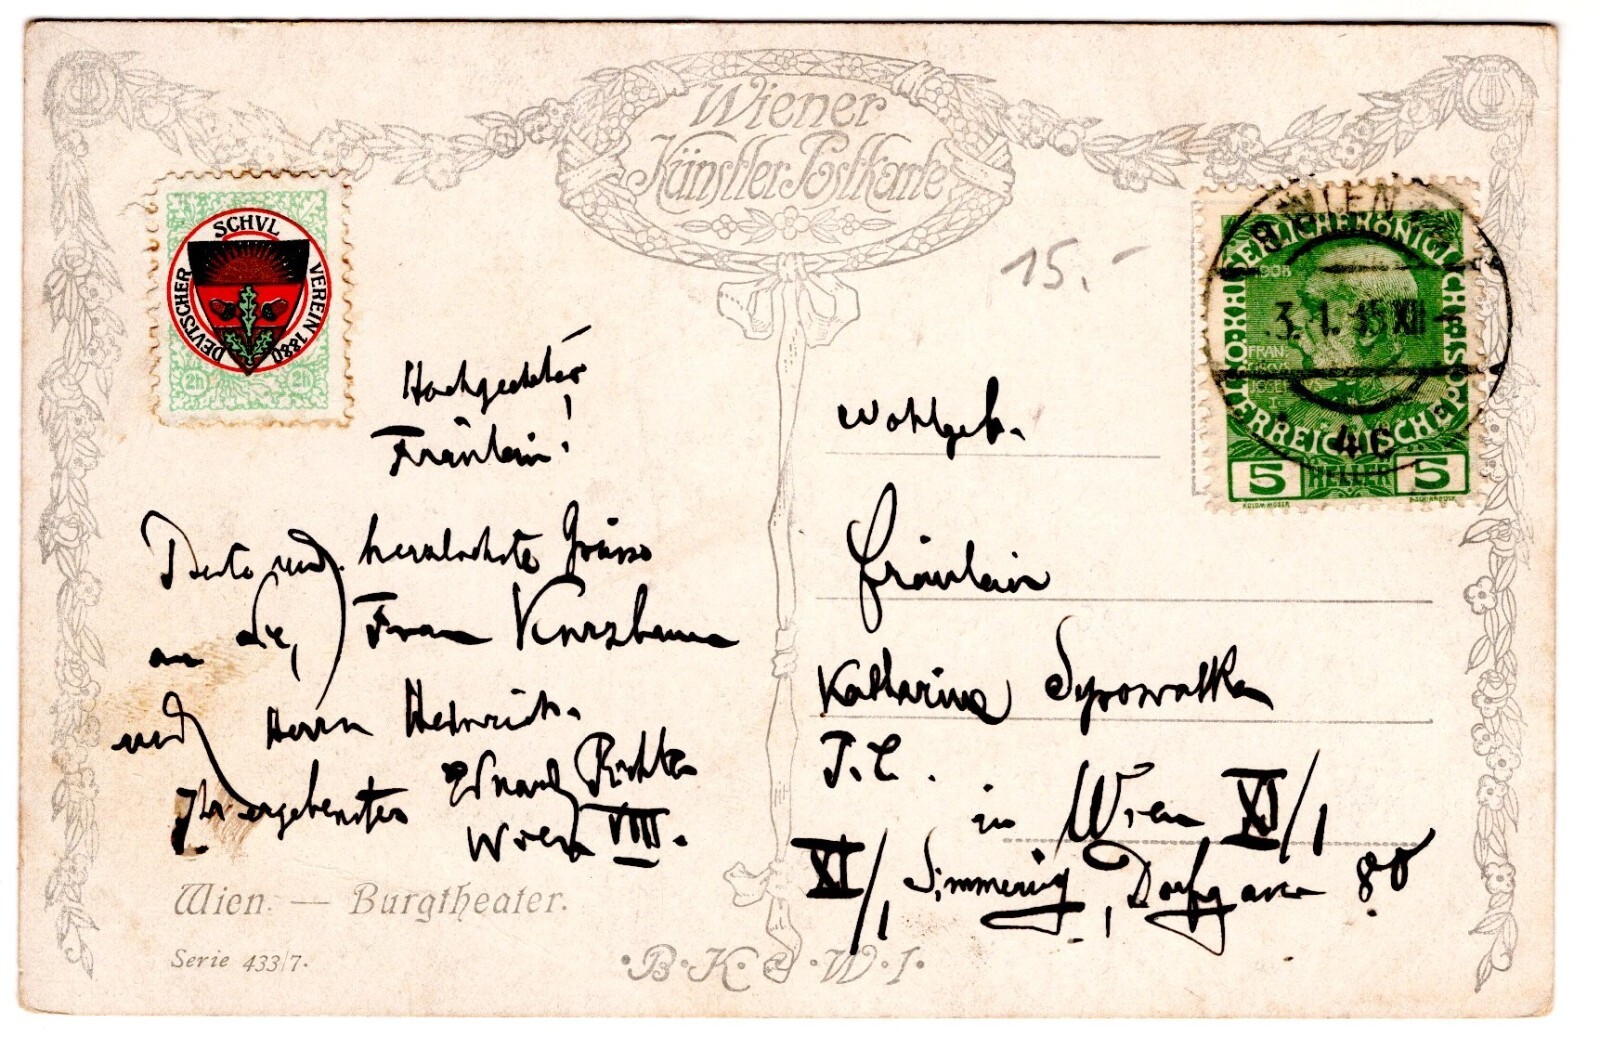 Wiener
Künstler Postkarte
DEVTSCHER SCHVL VEREIN 1880
2h 2h
15.-
8 WIEN
3. I. 15 XII
4c
KAISERLICHE KÖNIGLICHE
ÖSTERREICHISCHE POST
1908
FRANZ
JOSEF
I
5 HELLER 5
KOLOM. MOSER
Hochgeehrtes
Fräulein!
Beste und herzlichste Grüsse
an Sie, Frau Kurzbauer
und Herrn Heinrich.
Ihr ergebenster Eduard
Wien VIII.
Wien. — Burgtheater.
Serie 433/7.
·B·K·W·I·
Wohlgeb.
Fräulein
Katharina Syrowatka
in Wien XI/1
XI/1 Simmering, Dorfgasse 80